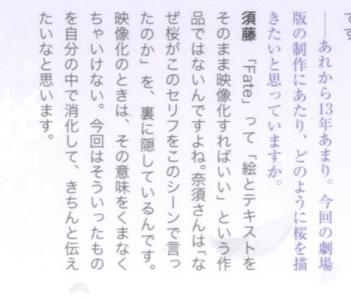 です
――あれから13年あまり。今回の劇場
版の制作にあたり、どのように桜を描
きたいと思っていますか。
須藤　「Fate」って「絵とテキストを
そのまま映像化すればいい」という作
品ではないんですよね。奈須さんは「な
ぜ桜がこのセリフをこのシーンで言っ
たのか」を、裏に隠しているんです。
映像化のときは、その意味をくまなく
ちゃいけない。今回はそういったもの
を自分の中で消化して、きちんと伝え
たいなと思います。